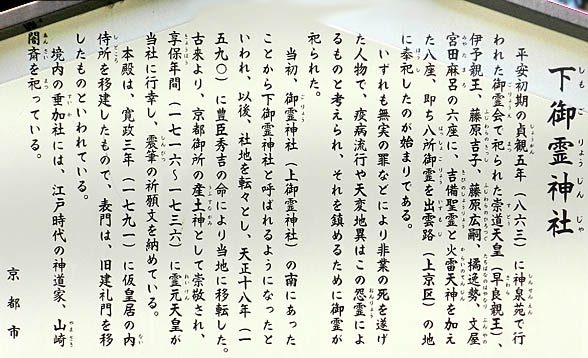 下御霊神社
平安初期の貞観五年（八六三）に神泉苑で行
われた御霊会で祀られた崇道天皇（早良親王）、
伊予親王、藤原吉子、藤原広嗣、橘逸勢、文屋
宮田麻呂の六座に、吉備聖霊と火雷天神を加え
た八座、即ち八所御霊を出雲路（上京区）の地
に奉祀したのが始まりである。
いずれも無実の罪などにより非業の死を遂げ
た人物で、疫病流行や天変地異はこの怨霊によ
るものと考えられ、それを鎮めるために御霊が
祀られた。
当初、御霊神社（上御霊神社）の南にあった
ことから下御霊神社と呼ばれるようになったと
いわれ、以後、社地を転々とし、天正十八年（一
五九〇）に豊臣秀吉の命により当地に移転した。
古来より、京都御所の産土神として崇敬され、
享保年間（一七一六～一七三六）に霊元天皇が
当社に行幸し、震筆の祈願文を納めている。
本殿は、寛政三年（一七九一）に仮皇居の内
侍所を移建したもので、表門は、旧建礼門を移
したものといわれている。
境内の垂加社には、江戸時代の神道家、山崎
闇斎を祀っている。
京都市